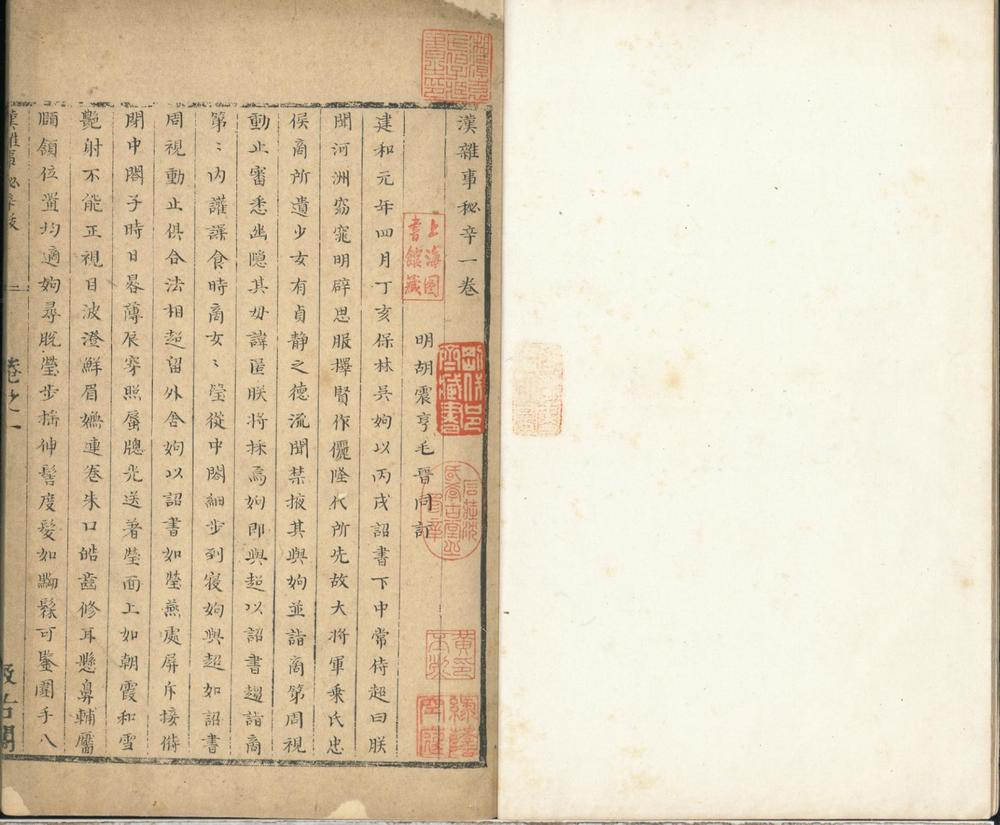 漢雜事秘辛一卷
明胡震亨毛晉同訂
建和元年四月丁亥保林吳姁以丙戌詔書下中常侍超曰朕
聞河洲窈窕明辟思服擇賢作儷隆代所先故大將軍乘氏忠
侯商所遺少女有貞靜之德流聞禁掖其與姁並詣商第周視
動止審悉幽隱其毋諱匿朕將採焉姁即與超以詔書趨詣商
第〻內讙譁食時商女〻瑩從中閤細步到寢姁與超如詔書
周視動止俱合法相超留外舍姁以詔書如瑩燕處屏斥接侍
閉中閤子時日晷薄辰穿照蜃牕光送著瑩面上如朝霞和雪
艷射不能正視目波澄鮮眉嫵連卷朱口皓齒修耳懸鼻輔靨
頤頷位置均適姁尋脫瑩步搖伸髻度髮如黝髹可鑒圍手八
漢雜事祕辛
卷之一
汲古閣
上海圖書館藏